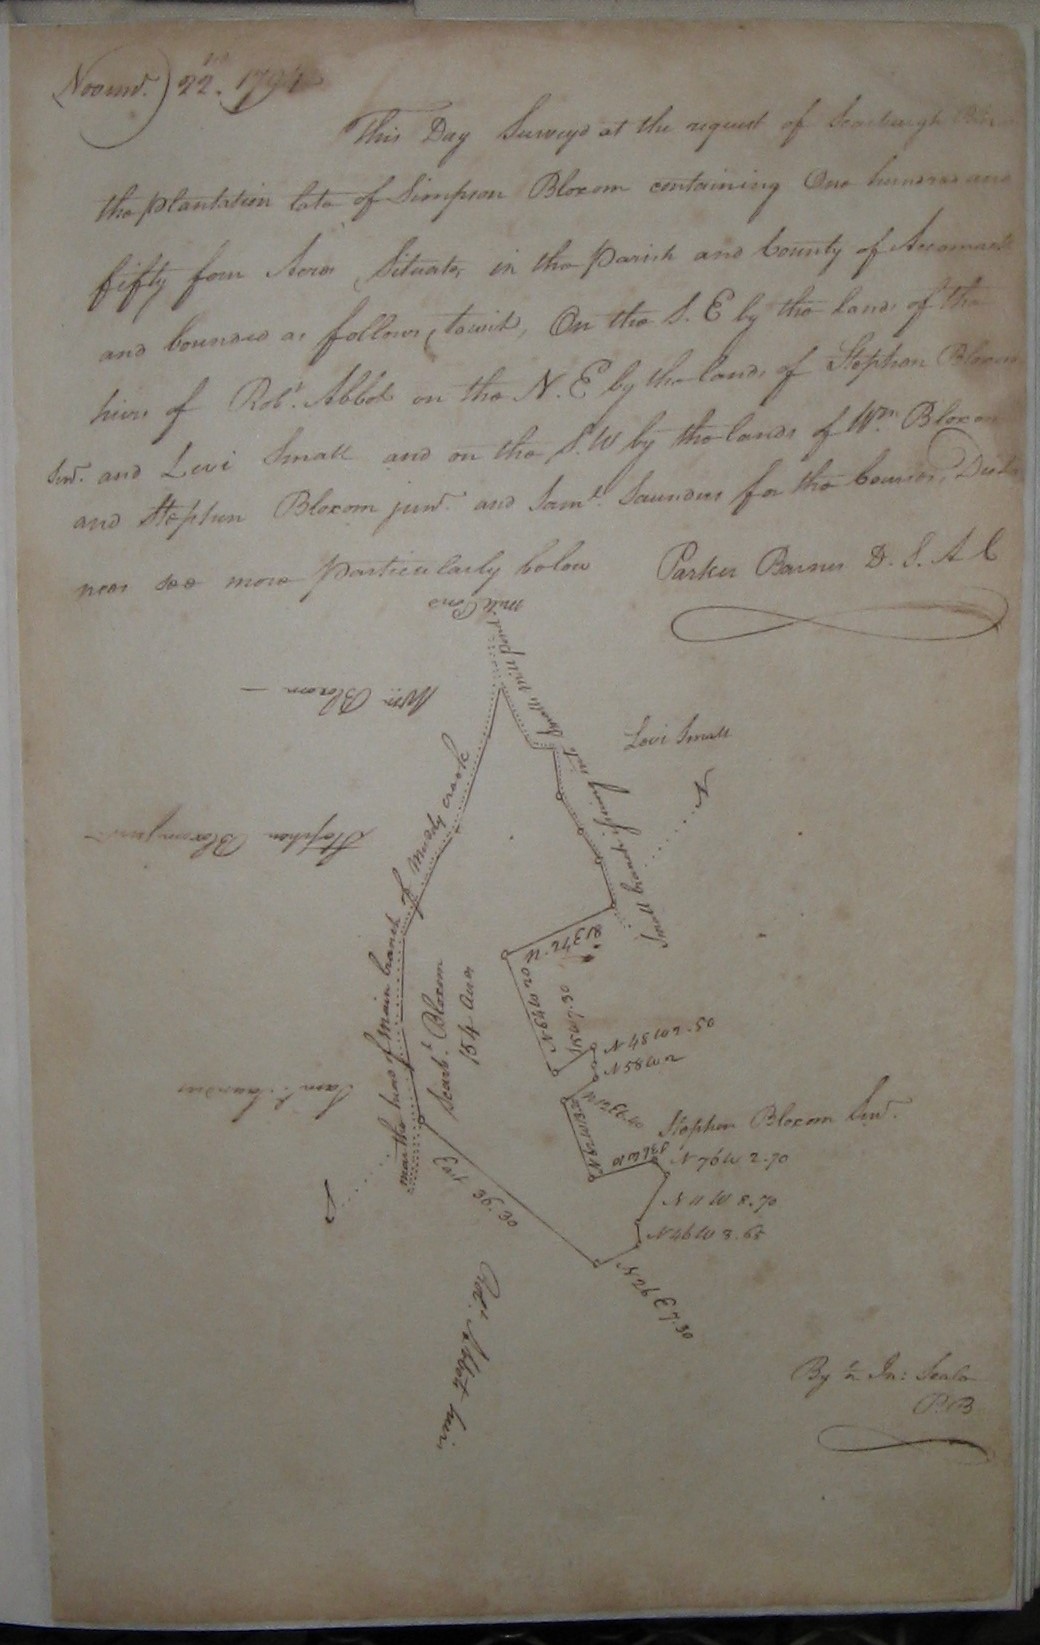 Novemr. 22. 179
This Day Surveyd at the request of Scarburgh
the plantation late of Simpson Bloxom containing One hundred and
fifty four Acres Situate, in the Parish and County of Accomack
and bounded as follows, towit, On the S. E by the lands of the
hiers of Robt. Abbot on the N. E by the lands of Stephen Bloxom
Senr. and Levi Small and on the S. W by the lands of Wm. Bloxom
and Stephen Bloxom junr. and Saml. Saunders for the Courses, Dists
near see more particularly below
Parker Barnes D. S. A C
Mill Pond
Wm Bloxom
Small branch isuing into Smalls Mill pond
Levi Small
N
Stephen Bloxom junr
head of main branch of Muddy creek
Scarbh. Bloxom
154 Acres
Saml. Saunders
N64W20
N48W2.50
N58W2
Stephen Bloxom Senr.
N76W2.70
N11W8.70
N46W3.65
E7.30
39.30
Robt. Abbot heirs
By ½ In: Scale
P.B